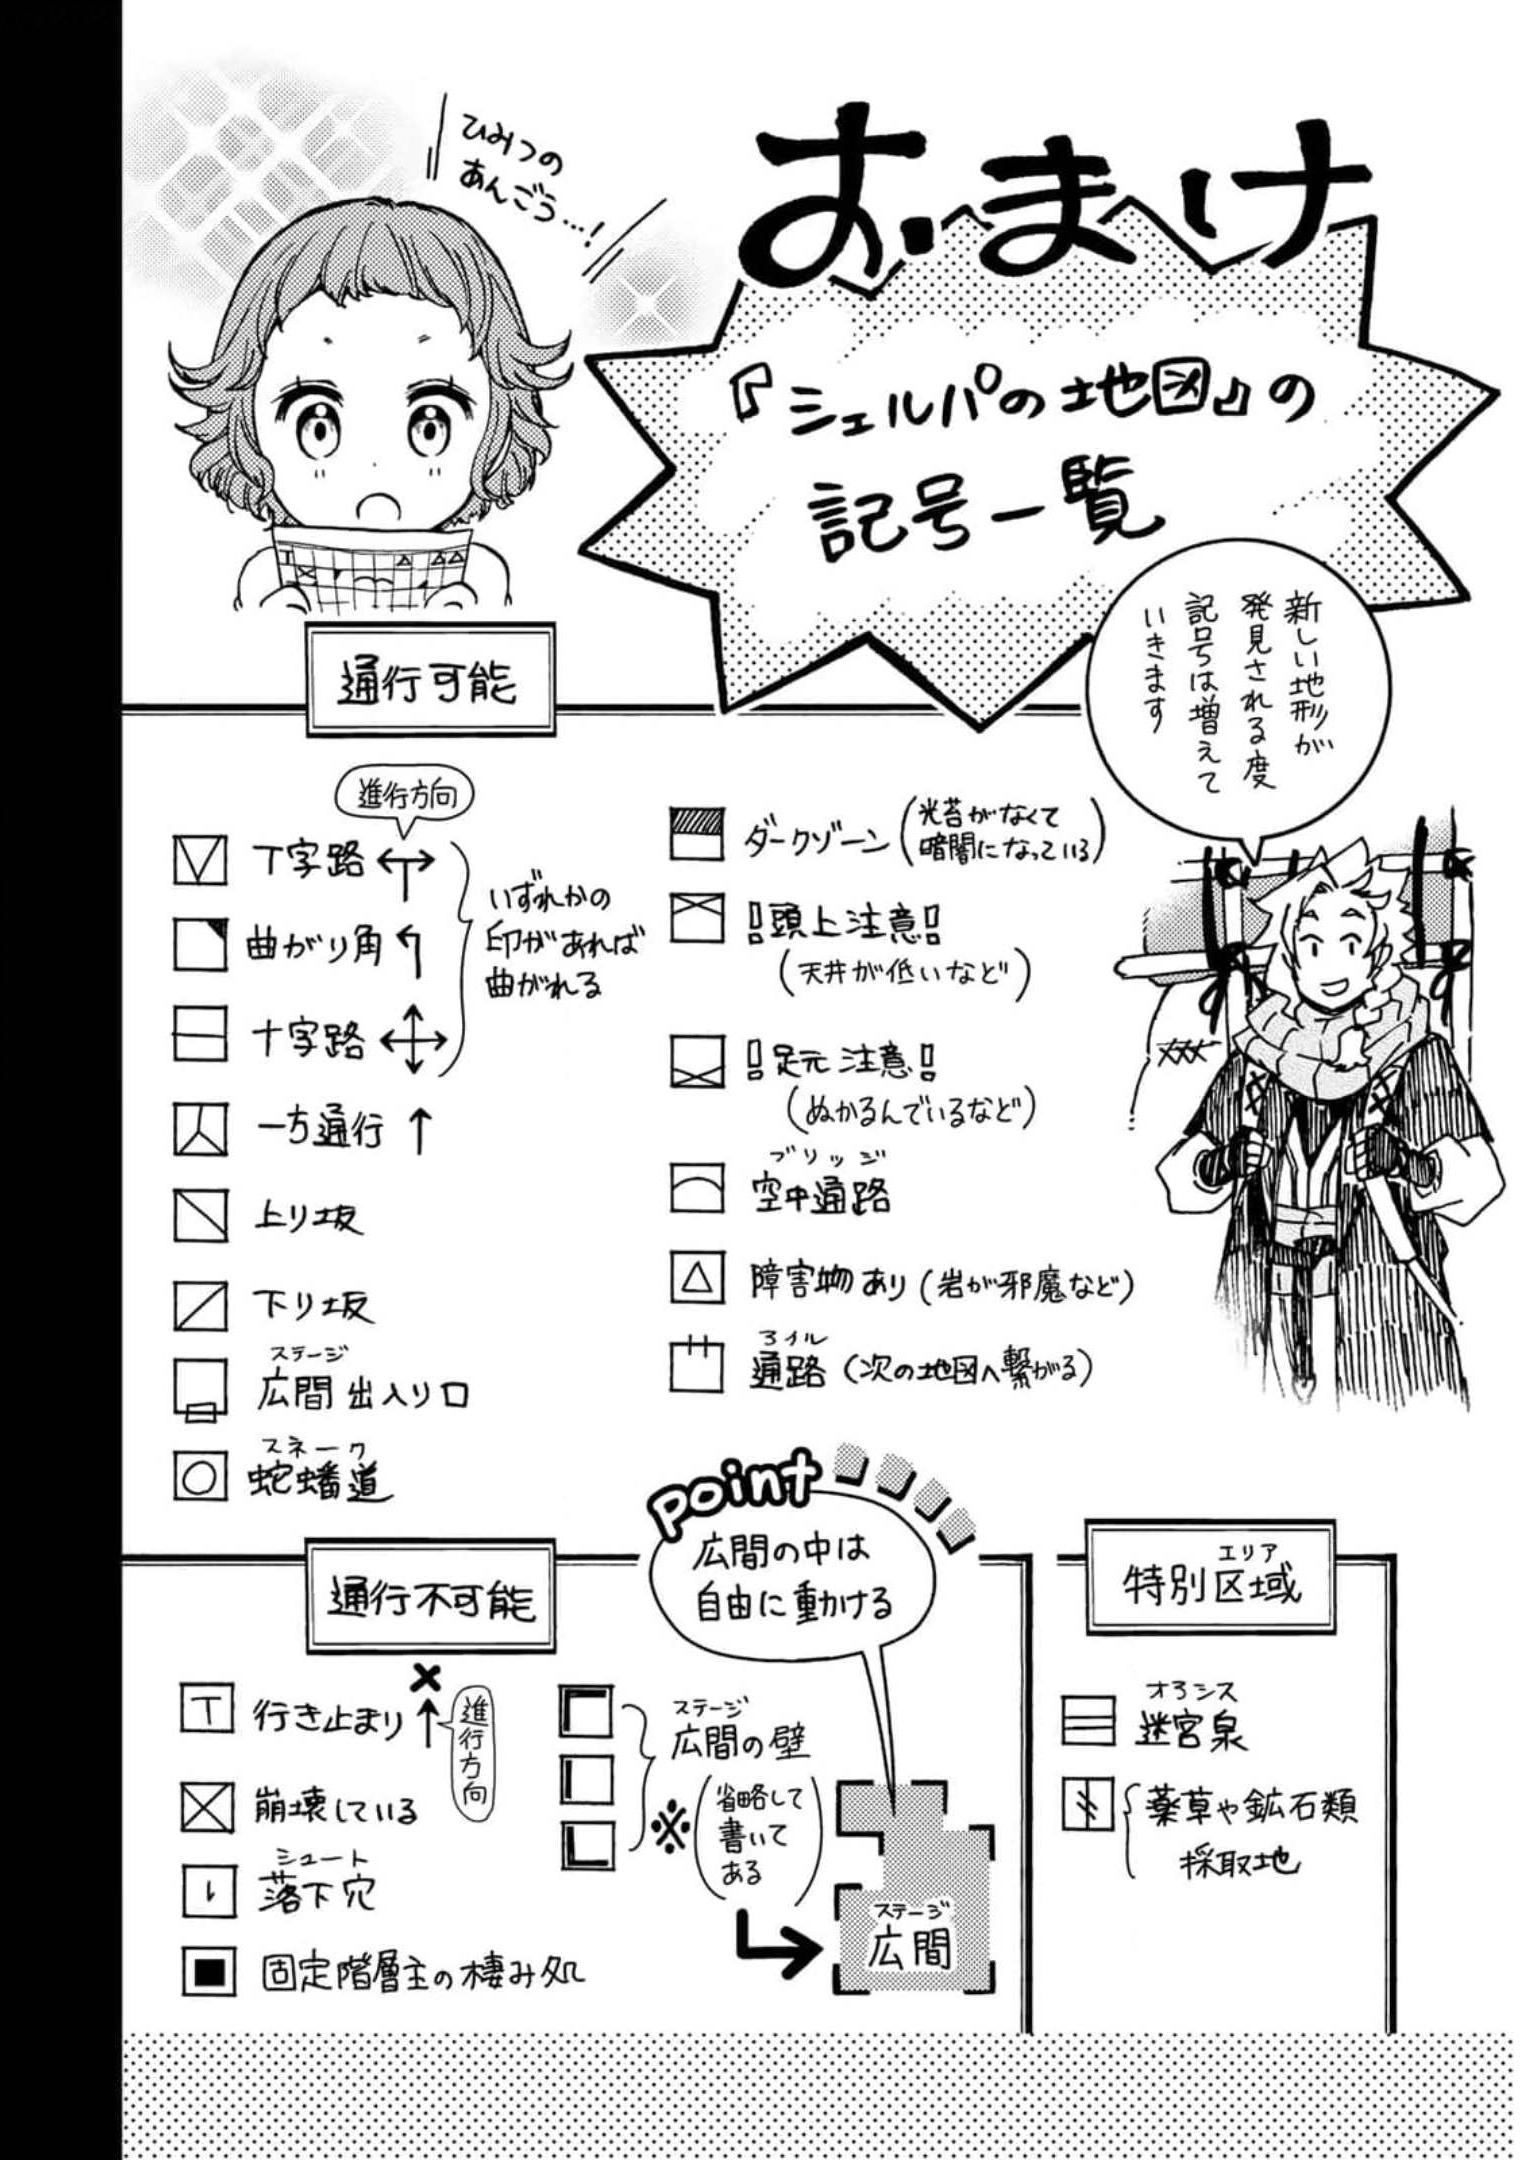 おまけ
『シェルパの地図』の
記号一覧
ひみつの
あんごう…!
新しい地形が
発見される度
記号は増えて
いきます
通行可能
進行方向
T字路
曲がり角
十字路
いずれかの
印があれば
曲がれる
一方通行
上り坂
下り坂
ステージ
広間出入り口
スネーク
蛇蟠道
ダークゾーン(光苔がなくて
暗闇になっている)
!頭上注意!
(天井が低いなど)
!足元注意!
(ぬかるんでいるなど)
ブリッジ
空中通路
障害物あり(岩が邪魔など)
通路(次の地図へ繋がる)
point
広間の中は
自由に動かける
通行不可能
行き止まり
進行方向
崩壊している
シュート
落下穴
固定階層主の棲み処
ステージ
広間の壁
※
(省略して
書いて
ある)
ステージ
広間
エリア
特別区域
オアシス
迷宮泉
薬草や鉱石類
採取地